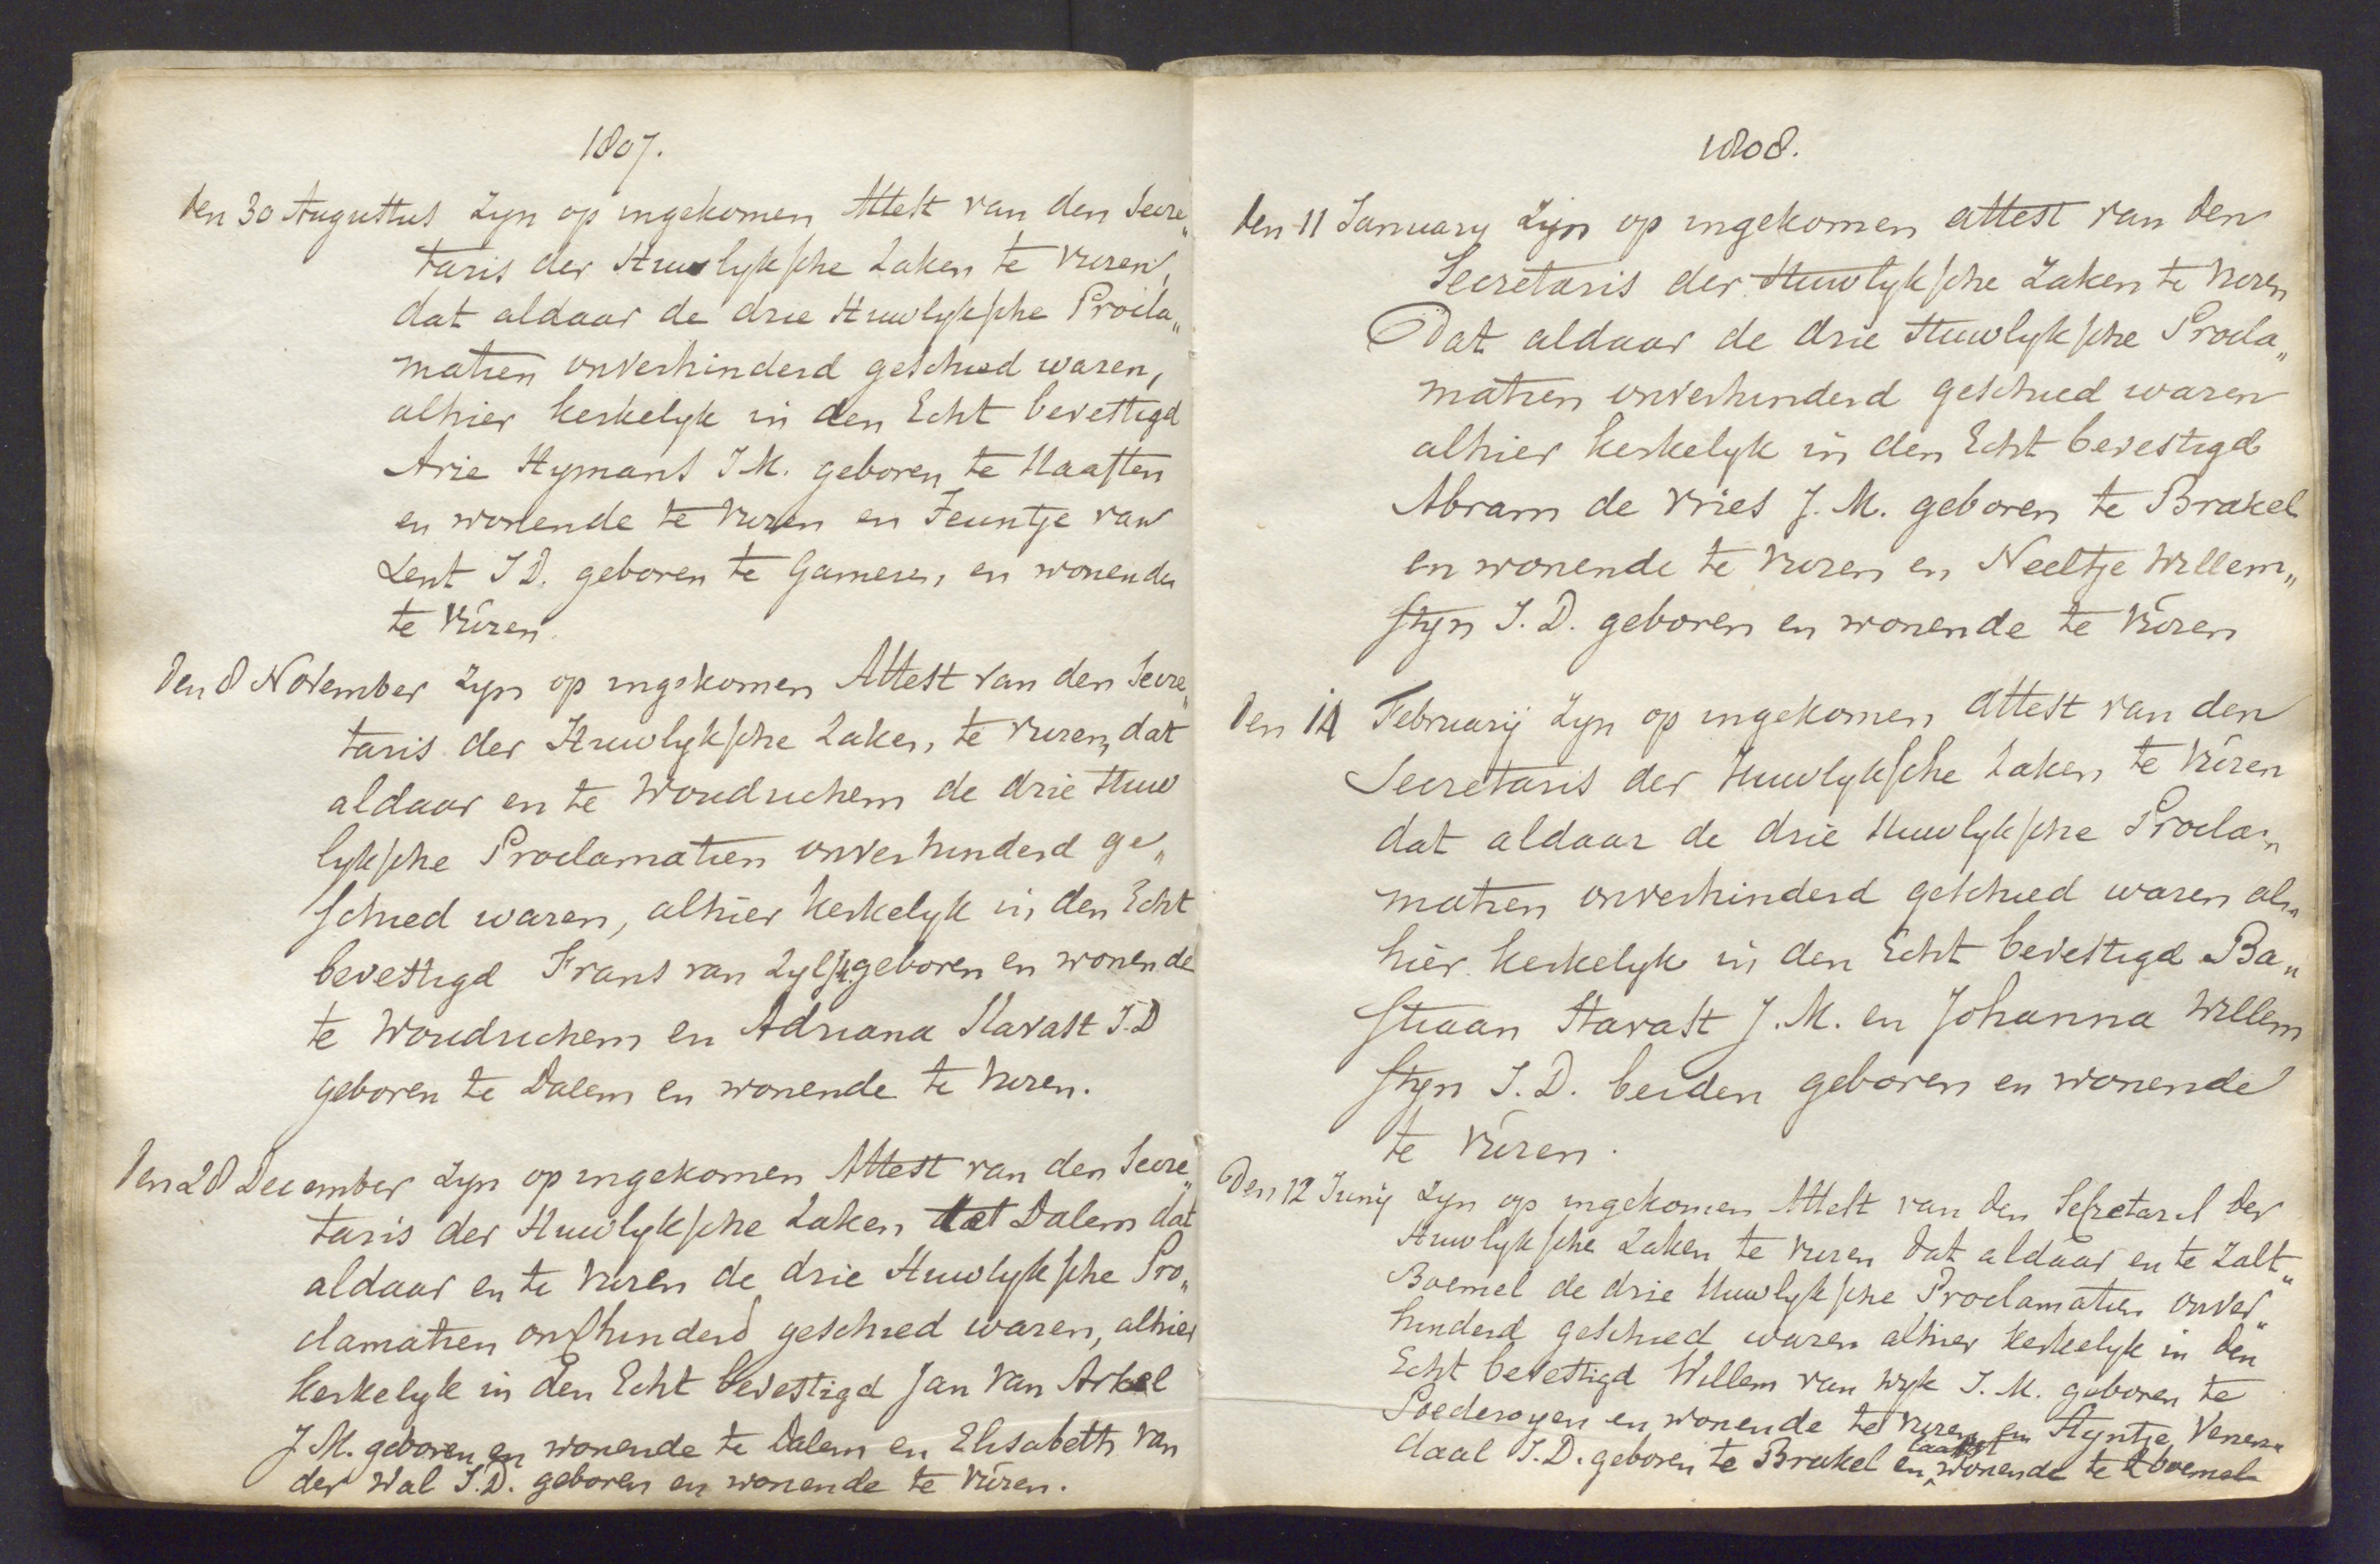 1807.
den 30 Augustus Zyn op ingekomen Attest van den Secre„
taris der Huwlyksche Zaken te Vuren,
dat aldaar de drie Huwlyksche Procla„
matien onverhinderd geschied waren,
alhier kerkelyk in den Echt bevestigd
Arie Hymans J M. geboren te Haaften
en wonende te Vuren en Teuntje van
Lent J D. geboren te Gameren, en wonende
te Vúren.
den 8 November Zyn op ingekomen Attest van den Secre„
taris der Huwlyksche Zaken, te Vuren, dat
aldaar en te Woudrichem de drie Huw
lyksche Proclamatien onverhinderd ge„
schied waren, alhier kerkelyk in den Echt
bevestigd Frans van Zyl geboren en wonende
te Woudrichem en Adriana Havast J. D
geboren te Dalem en wonende te Vuren.
den 28 December Zyn op ingekomen Attest van den Secre„
taris der Huwlyksche Zaken Dalem dat
aldaar en te Vuren de drie Huwlyksche Pro„
clamatien geschied waren, alhier
kerkelyk in den Echt bevestigd Jan van Arkel
J M. geboren en wonende te Dalem en Elisabeth van
der Wal J. D. geboren en wonende te Vúren.
1808.
den 11 January Zyn op ingekomen attest van den
Secretaris der Huwlyksche Zaken te Vuren
Dat aldaar de drie Huwlyksche Procla„
matien onverhinderd geschied waren
alhier kerkelyk in den Echt bevestigd
Abram de Vries J. M. geboren te Brakel
en wonende te Vuren en Neeltje Willem„
styn J. D. geboren en wonende te Vúren
den 14 February Zyn op ingekomen attest van den
Secretaris der Huwlyksche Zaken te Vúren
dat aldaar de drie Huwlyksche Procla„
matien onverhinderd geschied waren al„
hier kerkelyk in den Echt bevestigd Ba„
stiaan Havast J. M. en Johanna Willem
styn J. D. beiden geboren en wonende
te Vúren.
Den 12 Juny Zyn op ingekomen Attest van den Secretaris der
Huwlyksche Zaken te Vuren dat aldaar en te Zalt„
Boemel de drie Huwlyksche Proclamatien onver„
hinderd geschied waren alhier kerkelyk in den
Echt bevestigd Willem van Wyk J. M. geboren te
Poederoyen en wonende te Vuren en Styntje Venen„
daal J. D. geboren te Brakel en laatst wonende te Zboemel